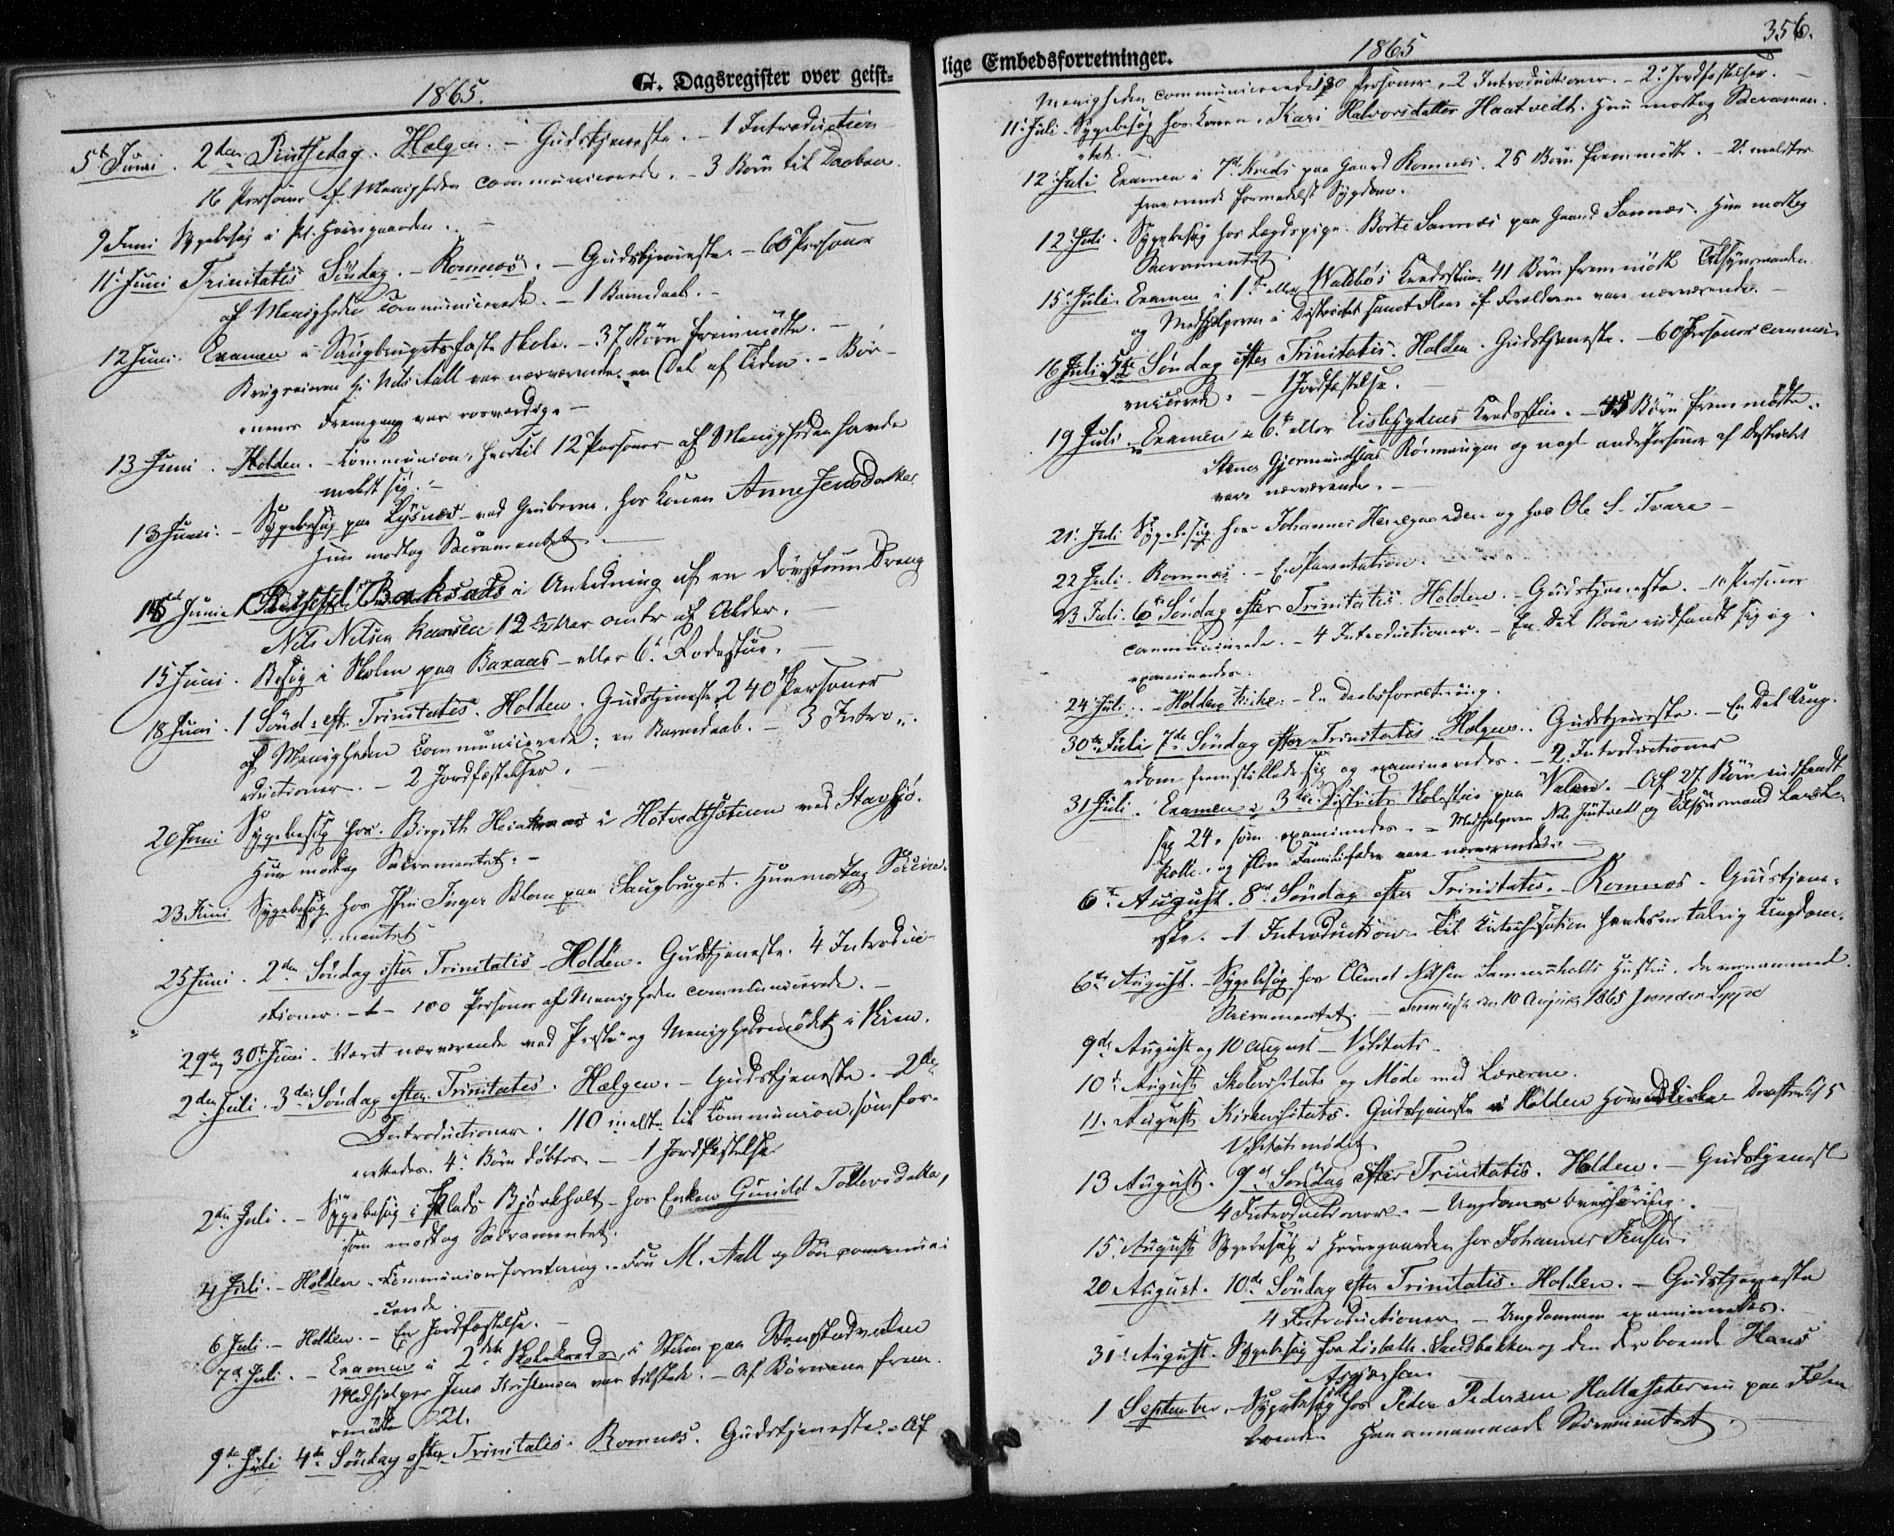 1865.
G. Dagsregister over geist-
5te Juni. 2den Pintsedag. Hælgen. - Gudstjeneste. - 1 Introduction
16 Personer af Menigheden communicerede. - 3 Børn til Daaben.
9 Juni Sygebesøg i
11te Juni Trinitatis Søndag. - Romnæs. - Gudstjeneste - 60 Personer
af Menigheden communicerede. - 1 Barnedaab. -
12 Juni. Examen i Saugbrugets faste Skole. - 37 Børn fremmødte. -
Brugseieren Hr Nils Aall var nærværende en Del af Tiden. - Bør-
nenes Fremgang var rosværdig. -
13 Juni. Holden. - Communion, hvortil 12 Personer af Menigheden havde
meldt sig. -
13 Juni. - Sygebesøg paa Lysnæs - ved Gruberne, hos Konen Anne Jensdatter
Hun modtog Sacramentet. -
Juni Baksaas i Anledning af en døvstum Dreng
Nils Nilsen 12 1/2 Aar omtr af Alder.
15 Juni. Besøg i Skolen paa Baxaas - eller 6te Rodestue.
18 Juni. 1 Sønd: eft. Trinitatis. Holden. Gudstjeneste. 240 Personer
af Menigheden communicerede; en Barnedaab. - 3 Intro-
ductioner. - 2 Jordfæstelser.
20 Juni Sygebesøg hos Birgith i Hotvedtsæteren ved Stavsjø.
Hun modtog Sacramentet. -
23 Juni Sygebesøg hos Inger Blom paa Saugbruget. Hun modtog Sacra-
mentet
25 Juni. 2den Søndag efter Trinitatis - Holden. Gudstjeneste. 4 Introduc-
tioner. - 100 Personer af Menigheden communicerede. -
29de og 30te Juni. Været nærværende ved Præste og Menighedsmødet i Skien.
2den Juli. 3die Søndag efter Trinitatis. Hælgen. - Gudstjeneste. - 2de
Introductioner. 110 meldte til Communion, som for-
rettedes. 4 Børn døbtes - 1 Jordfæstelse
2den Juli. - Sygebesøg i Plads Bjørkholt - hos Enken Gunild Tollevsdatter,
som modtog Sacramentet.
4 Juli. - Holden. Communionsforretning. - Fru M. Aall og Søn communi-
cerede.
6 Juli. - Holden. - En Jordfæstelse. -
7de Juli. - Examen i 2den Skolekreds, i Stuen paa
Medhjelper Jens Kristensen var tilstede. - Af Børnene frem-
mødte 21.
9de Juli 4de Søndag efter Trinitatis. Romnæs. Gudstjeneste. - Af
lige Embedsforretninger.
1865
356.
Menigheden communicerede 130 Personer. - 2 Introductioner. - 2 Jordfæstelser. -
11te Juli. Sygebesøg hos Konen Kari Halvorsdatter Haatvedt. Hun modtog Sacramen-
tet. -
12 Juli Examen i 7de Kreds paa Gaard Romnæs. 26 Børn fremmødte. - 2 meldtes
fraværende formedelst Sygdom.
12 Juli. Sygebesøg hos Lægdspige Børte Sannæs paa Gaard Sannæs. Hun modtog
Sacramentet
15de Juli. Examen i 1ste eller Kredsstue. 41 Børn fremmødte Tilsynsmanden
og Medhjelperen i Districtet samt flere af Forældrene vare nærværende. -
16 Juli 5te Søndag efter Trinitatis. Holden. Gudstjeneste. - 60 Personer commu-
nicerede. - 1 Jordfæstelse. -
19 Juli. Examen i 6te eller Eisbygdens Kredsstue. - 45 Børn fremmødte.
Gjermundsen og nogle andre Personer af Districtet
vare nærværende. -
21 Juli Sygebesøg hos Johannes og hos Ole S. Tvara -
22 Juli. Romnæs. -
23 Juli. 6te Søndag efter Trinitatis. Holden. - Gudstjeneste. - 11 Personer
communicerede. - 4 Introductioner. - En Del Børn indfandt sig og
examineredes.
24 Juli. - Holden Kirke. - En Daabsforretning.
30te Juli 7de Søndag efter Trinitatis. Hælgen. Gudstjeneste. - En Del Ung-
dom fremstillede sig og examineredes. - 2 Introductioner
31 Juli. Examen i 3die Districts Skolestue paa Valen. Af 27 Børn indfandt
sig 24, som examineredes. - Medhjelperen og Tilsynsmand
og flere Familiefædre vare nærværende. -
6te August. 8de Søndag efter Trinitatis. - Romnæs. - Gudstjene-
ste. - 1 Introduction. Til Catechisation havdes en talrig Ungdom.
6te August. - Sygebesøg hos Clemet Nilsen Hustru, der annammede
Sacramentet. - den 10 August 1865
9de August og 10 August - Visitats -
10de August Skolevisitats og Møde med Lærerne.
11. August Kirkevisitats. Gudstjeneste i Holden Hovedkirke Derefter
Visitatsmødet.
13 August. 9de Søndag efter Trinitatis. Holden. - Gudstjeneste
4 Introductioner. - Ungdoms Overhøring.
15. August Sygebesøg i hos Johannes Jensen.
20 August. 10de Søndag efter Trinitatis. Holden. - Gudstjeneste
4 Introductioner. - Ungdommen examineredes.
31te August. Sygebesøg hos Lisbeth Sandbakken og den der boende Hans
1 September. - Sygebesøg hos Peder Pedersen paa
boende. Han annammede Sacramentet.